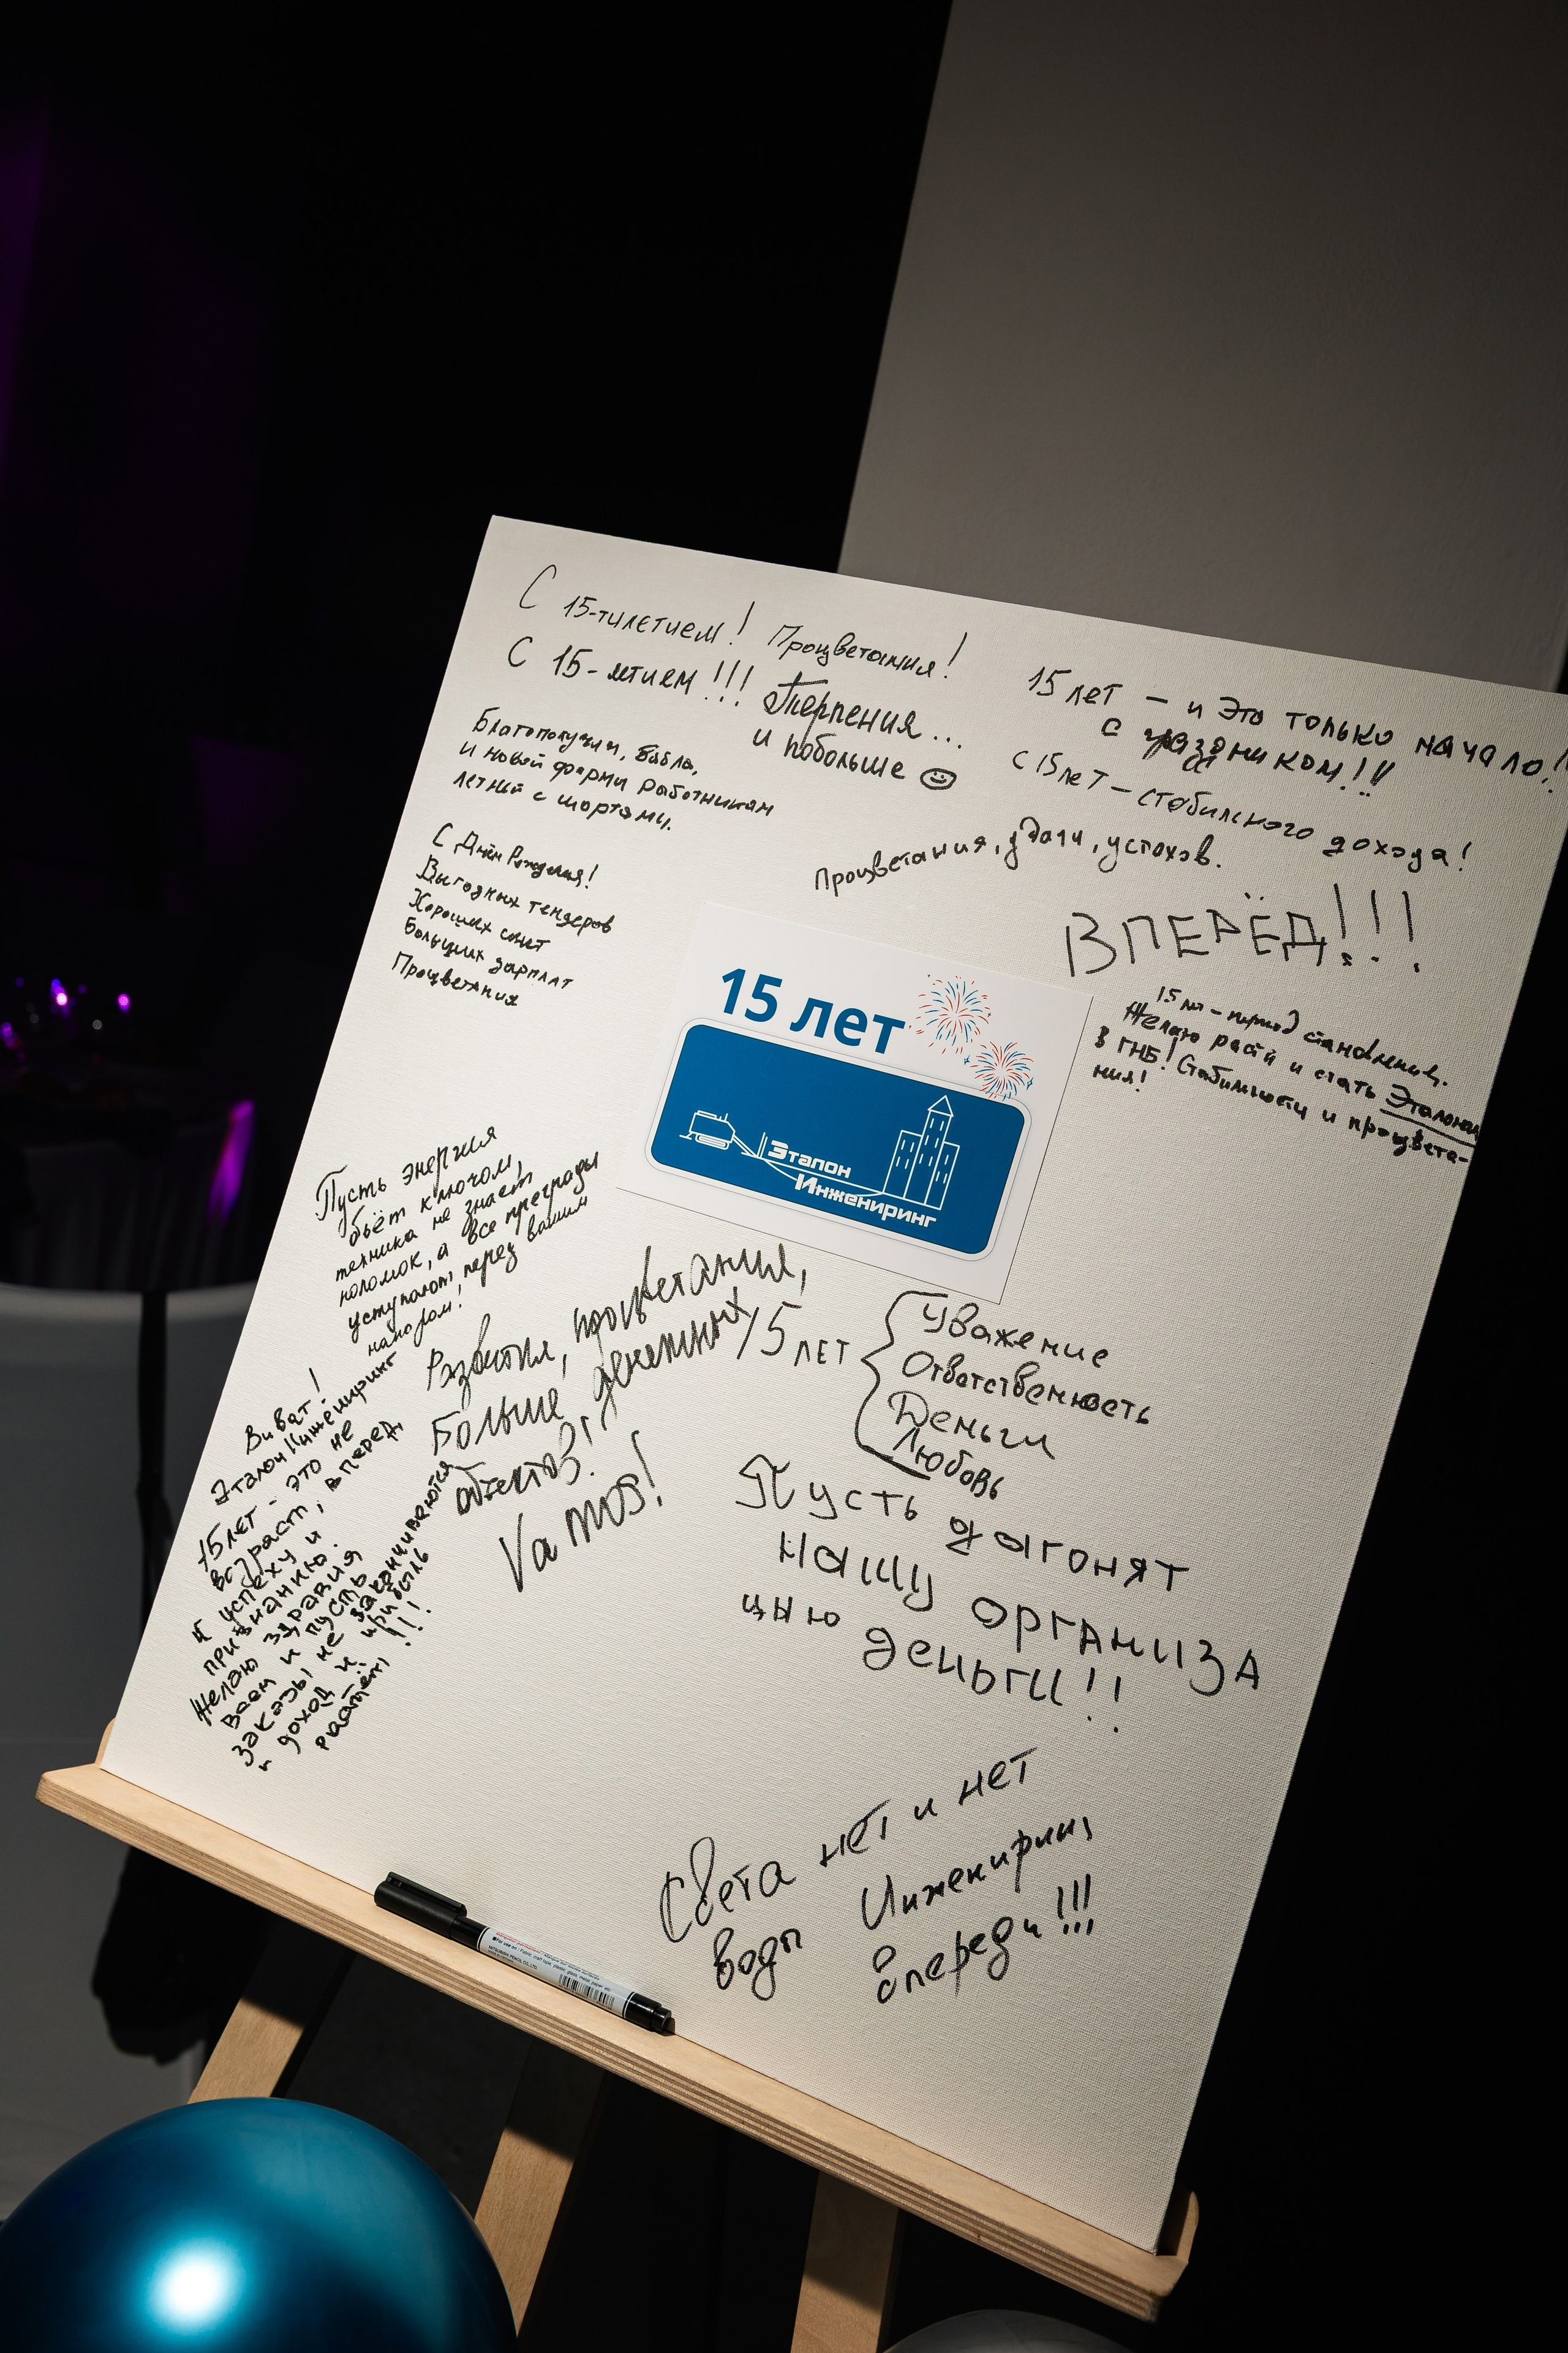 С 15-тилетием! Процветания!
С 15-летием!!! Терпения...
и побольше
Благополучия, бабла,
и новой формы работникам
летней с шортами.
15 лет – и это только начало!!
с праздником!!!
с 15 лет – стабильного дохода!
Процветания, удачи, успехов.
ВПЕРЁД!!!
С Днём Рождения!
Выгодных тендеров
Хороших смет
Больших зарплат
Процветания
15 лет – период становления.
Желаю расти и стать Эталоном
в ГНБ! Стабильности и процвета-
ния!
15 лет
Эталон
Инжениринг
Пусть энергия
бьёт ключом,
техника не знает
поломок, а все преграды
уступают перед вашим
напором!
Развития, процветания,
Больше денежных
объектов!
Vamos!
15 лет
Уважение
Ответственность
Деньги
Любовь
Виват!
Эталон Инжениринг
15 лет - это не
возраст, вперед,
к успеху и
признанию.
Желаю здравия
всем и пусть
заказы не заканчиваются
и доход и прибыль
растёт!!!!
Пусть дагонят
нашу организа
цыю деньги!!
Света нет и нет
воды Инженириг
впереди!!!